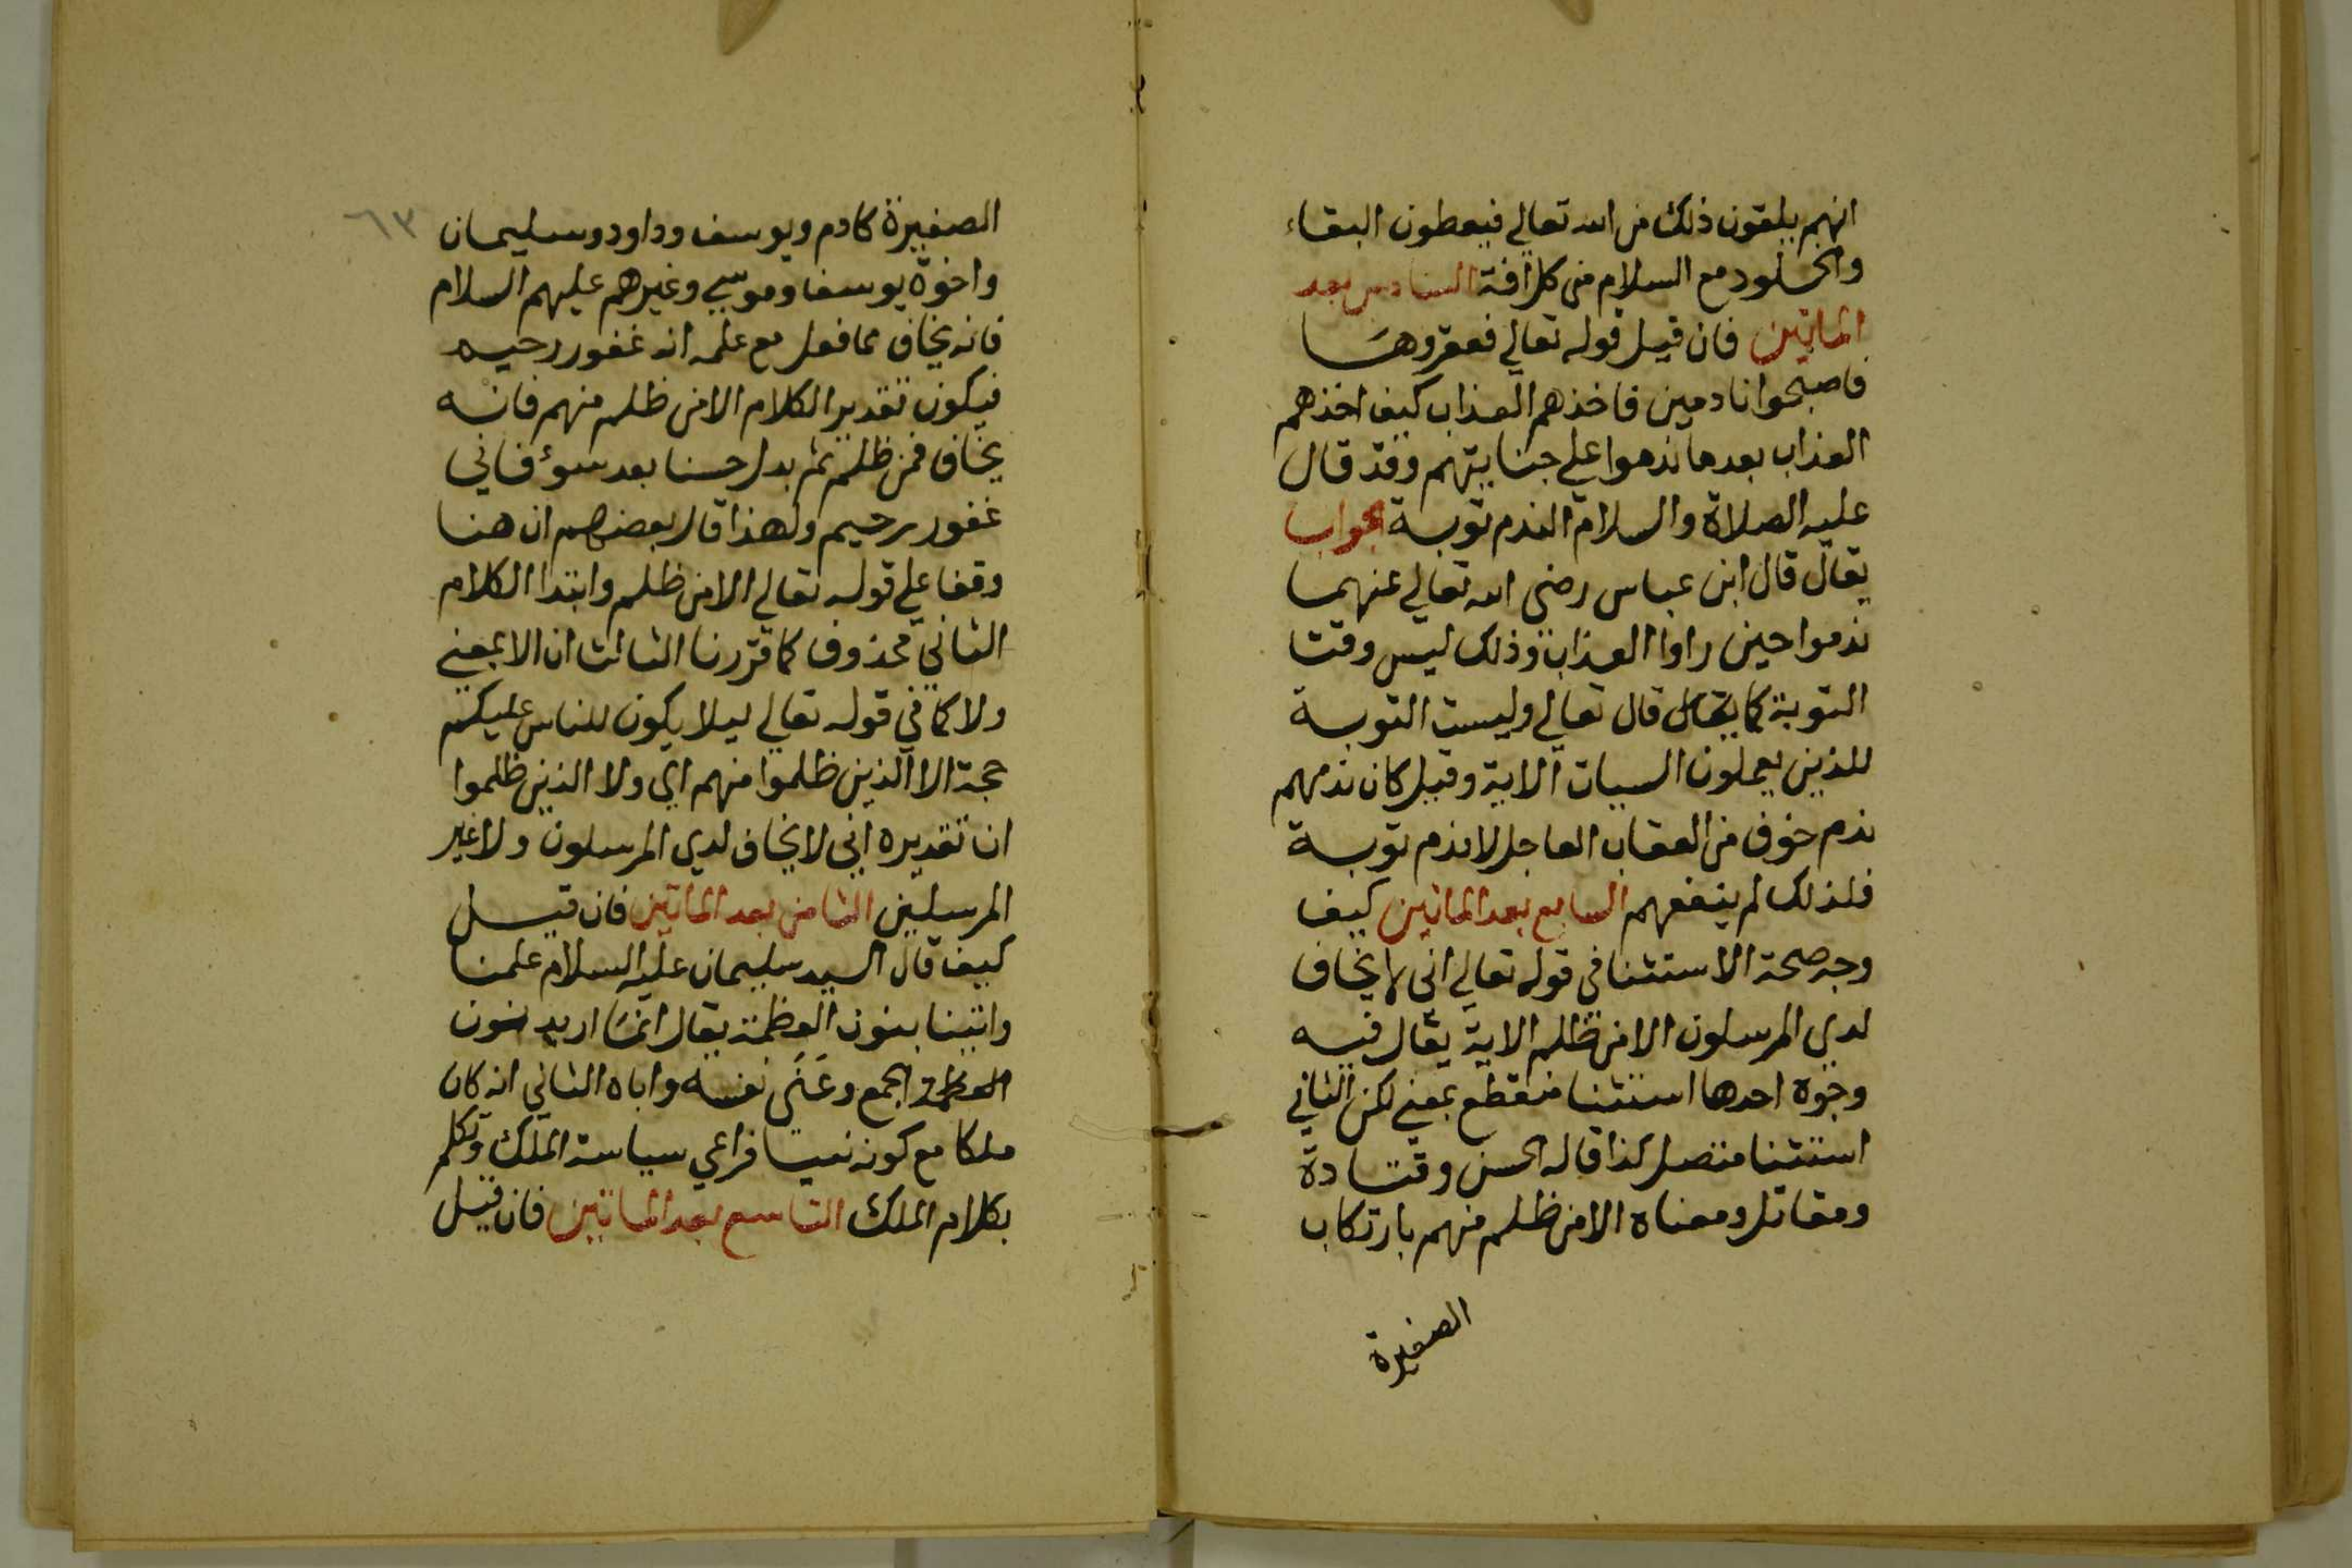 انهم يلقون ذلك من الله تعالي فيعطون البقاء
والخلود مع السلام من كل افة السادس بعد
الماتين فان قيل قوله تعالي فعقروها
فاصبحوا نادمين فاخذهم العذاب كيف اخذهم
العذاب بعد ما ندموا علي جنايتهم وقد قال
عليه الصلاة والسلام الندم توبة الجواب
يقال قال ابن عباس رضي الله تعالي عنهما
ندموا حين راوا العذاب وذلك ليس وقت
التوبة كما يقال قال تعالي وليست التوبة
للذين يعملون السيات الاية وقيل كان ندمهم
ندم خوف من العقاب العاجل لا ندم توبة
فلذلك لم ينفعهم السابع بعد الماتين كيف
وجه صحة الاستثنا في قوله تعالي اني لا يخاف
لدي المرسلون الا من ظلم الاية يقال فيه
وجوه احدها استثنا منقطع بمعني لكن الثاني
استثنا متصل كذا قاله الحسن وقتادة
ومقاتل ومعناه الا من ظلم منهم بارتكاب
الصغيرة
٦٣
الصغيرة كادم ويوسف وداود وسليمان
واخوة يوسف وموسي وغيرهم عليهم السلام
فانه يخاف مما فعل مع علمه انه غفور رحيم
فيكون تقدير الكلام الا من ظلم منهم فانه
يخاف فمن ظلم ثم بدل حسنا بعد سوء فاني
غفور رحيم ولهذا قال بعضهم ان هنا
وقفا علي قوله تعالي الا من ظلم وابتدا الكلام
الثاني محذوف كما قررنا الثالث ان الا بمعني
ولا كما في قوله تعالي ليلا يكون للناس عليكم
حجة الا الذين ظلموا منهم اي ولا الذين ظلموا
ان تقديره اني لا يخاف لدي المرسلون ولا غير
المرسلين الثامن بعد الماتين فان قيل
كيف قال السيد سليمان عليه السلام علمنا
واتينا بنون العظمة يقال انما اريد بنون
العظمة الجمع وعني نفسه واباه الثاني انه كان
ملكا مع كونه نبيا فراعي سياسة الملك وتكلم
بكلام الملك التاسع بعد الماتين فان قيل